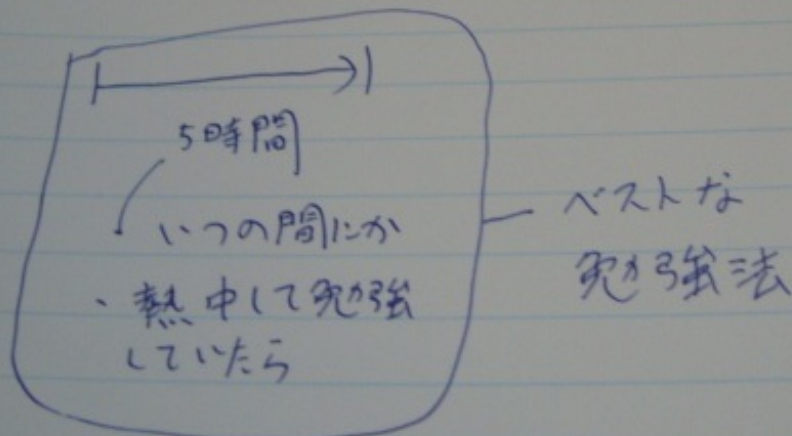 5時間
・いつの間にか
・熱中して勉強
していたら
ベストな
勉強法